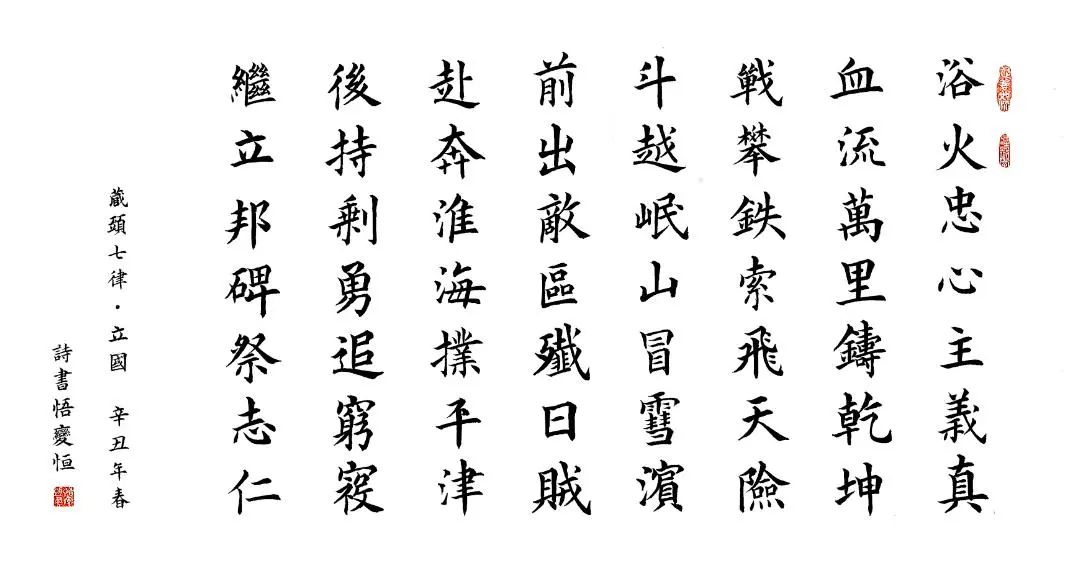 浴火忠心主義真
血流萬里鑄乾坤
戰攀鉄索飛天險
斗越岷山冒雪濱
前出敵區殲日賊
赴奔淮海撲平津
後持剩勇追窮寇
繼立邦碑祭志仁
藏頭七律·立國 辛丑年春
詩書悟變恒